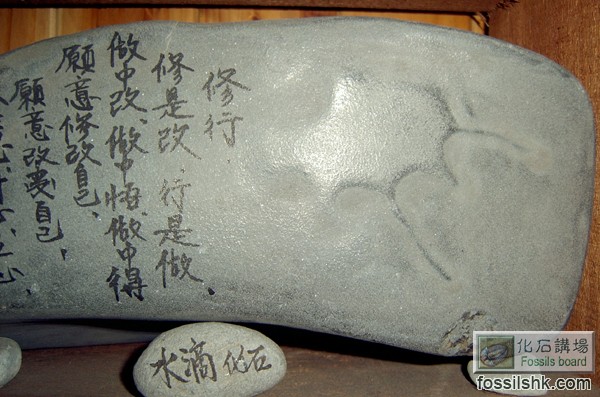 修行.
修是改、行是做.
做中改、做中悟、做中得
願意修改自己、
願意改變自己,
水滴化石
化石講場
Fossils board
fossilshk.com